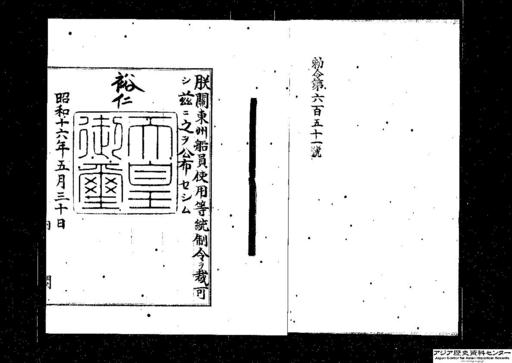 勅令第六百五十一號
朕關東州船員使用等統制令ヲ裁可
シ茲ニ之ヲ公布セシム
裕仁
天皇御璽
昭和十六年五月三十日
内閣
アジア歴史資料センター
Japan Center for Asian Historical Records